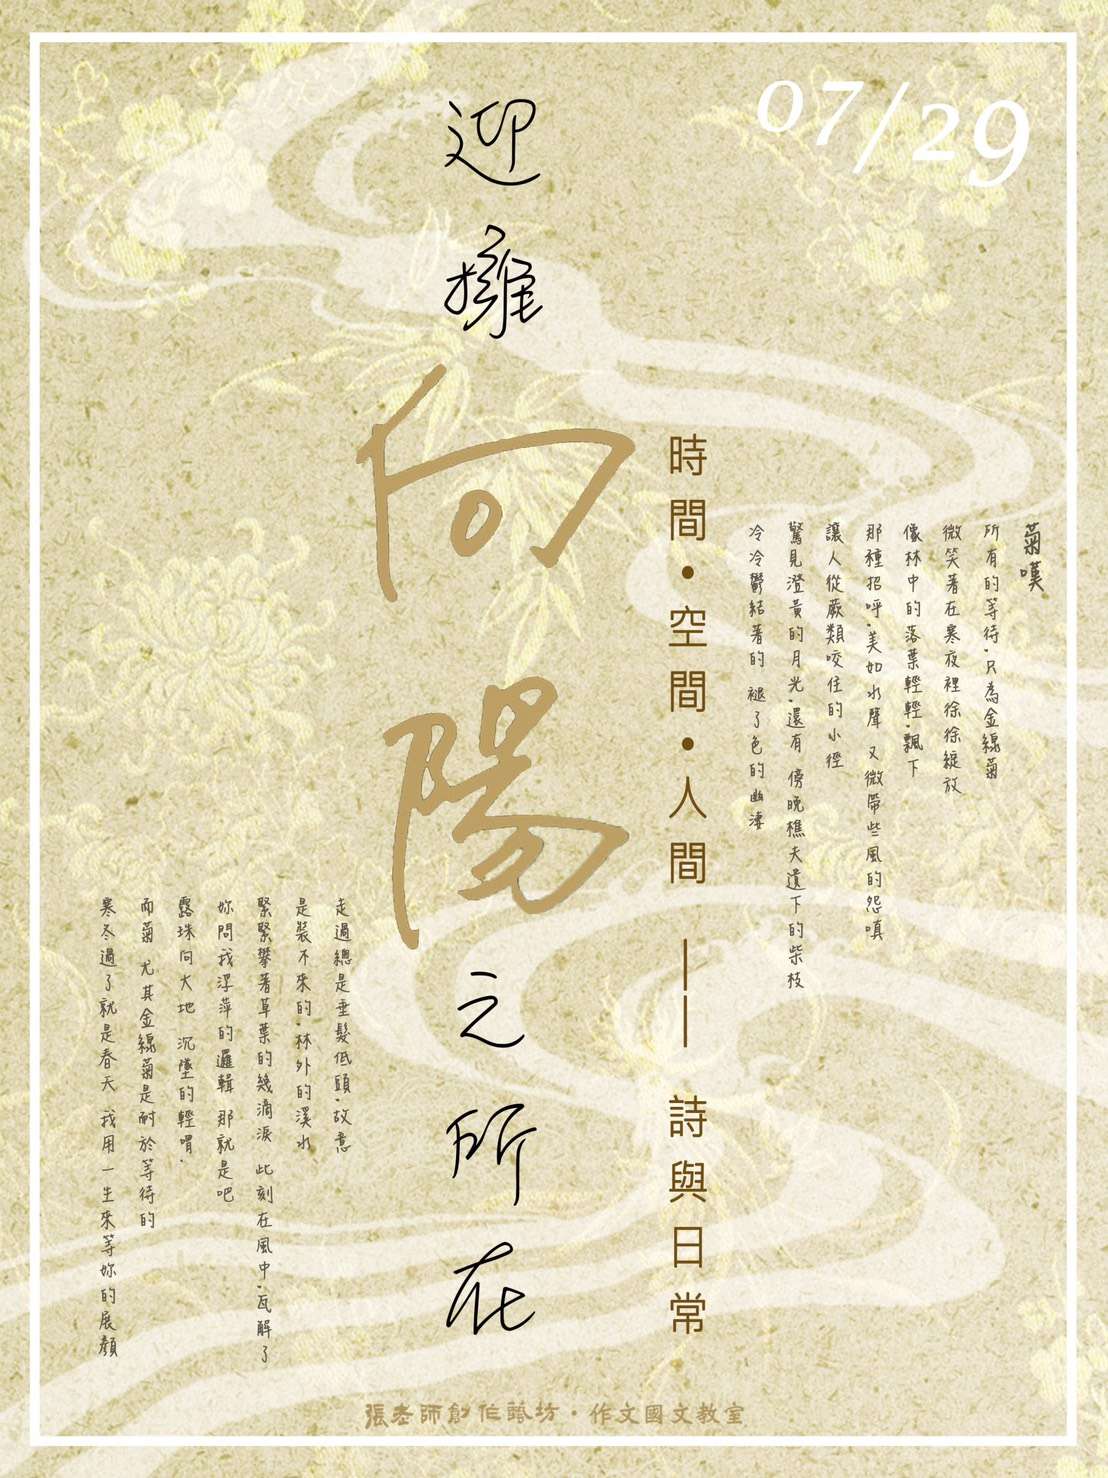 07/29
迎擁向陽之所在
時間・空間・人間——詩與日常
菊嘆
所有的等待，只為金線菊
微笑著在寒夜裡徐徐綻放
像林中的落葉輕輕，飄下
那種招呼，美如水聲 又微帶些風的怨嗔
讓人從蕨類咬住的小徑
驚見澄黃的月光，還有 傍晚樵夫遺下的柴枝
冷冷鬱結著的 褪了色的幽淒
走過總是垂髮低頭，故意
是裝不來的，林外的溪水
緊緊攀著草葉的幾滴淚 此刻在風中，瓦解了
妳問我浮萍的邏輯 那就是吧
露珠向大地 沉墜的輕喟，
而菊 尤其金線菊是耐於等待的
寒冬過了就是春天 我用一生來等妳的展顏
張老師創作藝坊・作文國文教室